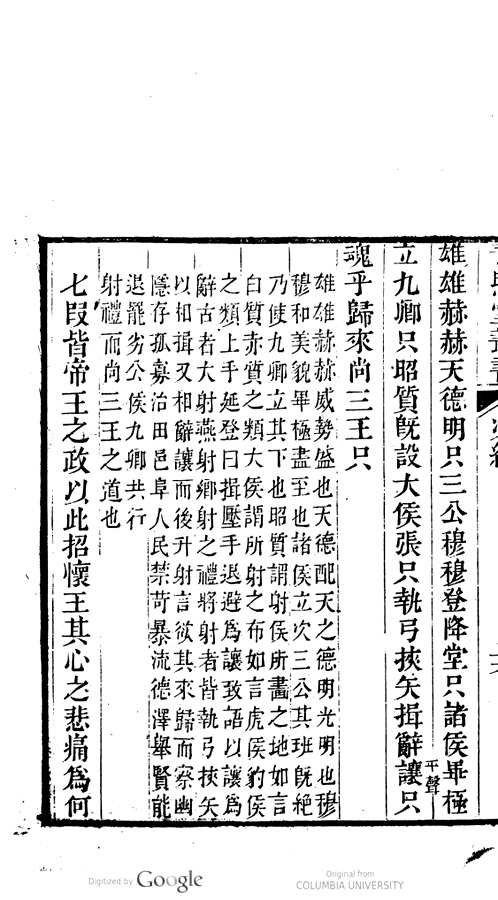 雄雄赫赫天德明只三公穆穆登降堂只諸侯畢極
立九卿只昭質既設大侯張只執弓挾矢揖辭讓只平聲
魂乎歸來尚三王只
雄雄赫赫威勢盛也天德配天之德明光明也穆
穆和美貌畢極盡至也諸侯立次三公其班既絕
乃使九卿立其下也昭質謂射侯所畫之地如言
白質赤質之類大侯謂所射之布如言虎侯豹侯
之類上手延登曰揖壓手退避爲讓致語以讓爲
辭古者大射燕射鄉射之禮將射者皆執弓挾矢
以相揖又相辭讓而後升射言欲其來歸而察幽
隱存孤寡治田邑阜人民禁苛暴流德澤舉賢能
退罷劣公侯九卿共行
射禮而尚三王之道也
七叚皆帝王之政以此招懷王其心之悲痛爲何
Digitized by Google
Original from
COLUMBIA UNIVERSITY